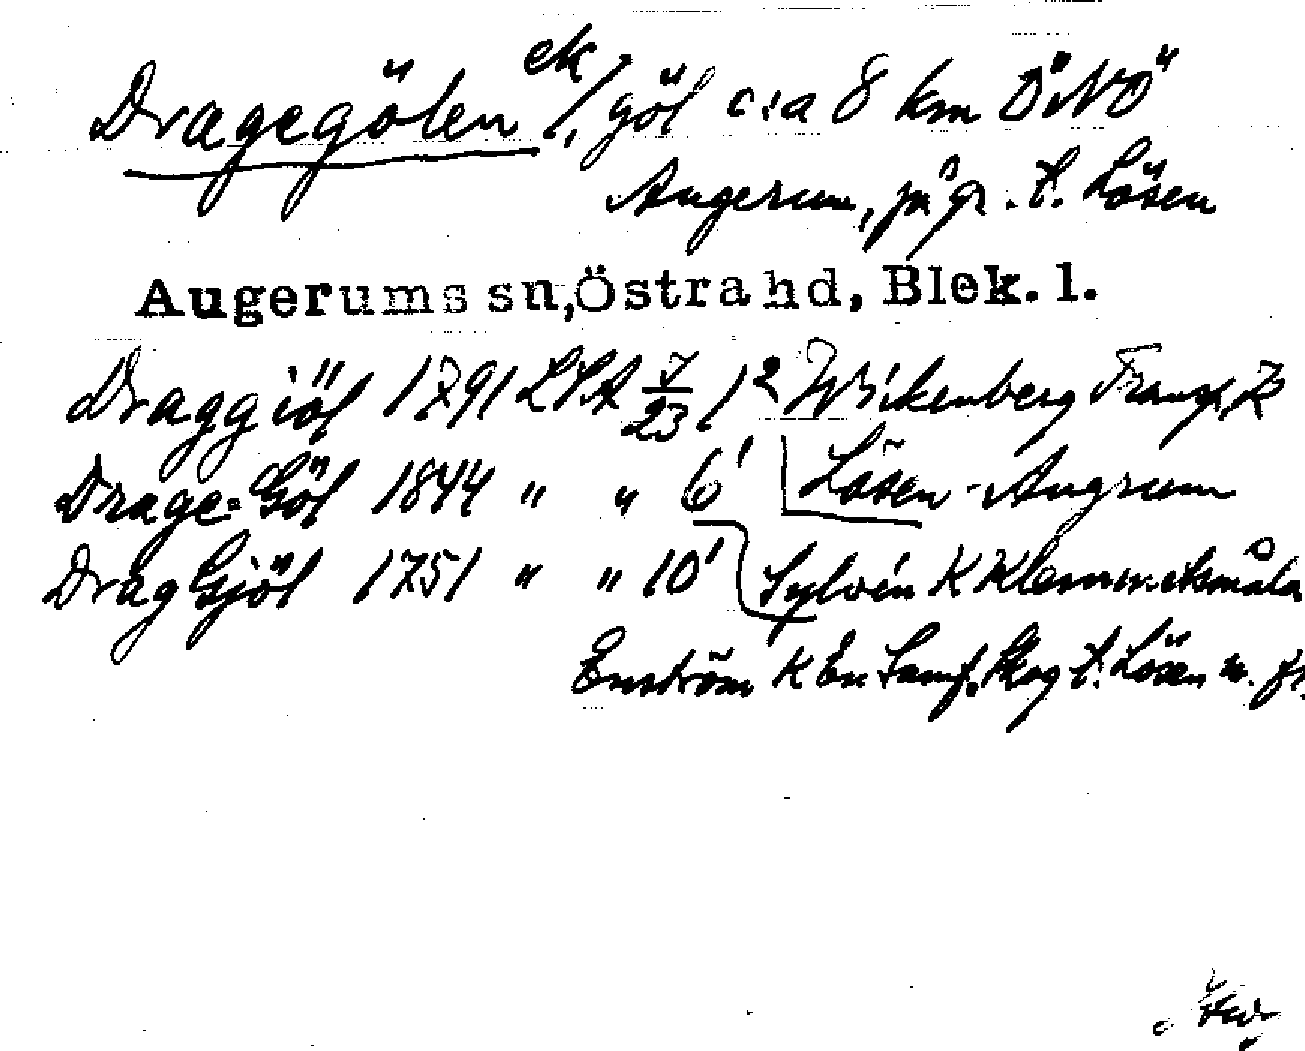 Dragegölen ek/, göl c:a 8 km ÖNÖ
Augerum, på gr. t. Lösen
Augerums sn, Östra hd, Blek. l.
Draggiöl 1791 LSA 7/23 /2 Wikenberg
Drage-Göl 1844 " " 6' Lösen - Augrum
Drag Gjöl 1751 " " 10' Sylvén K
Enström K En Samf. Skog t. Lösen m. fl.